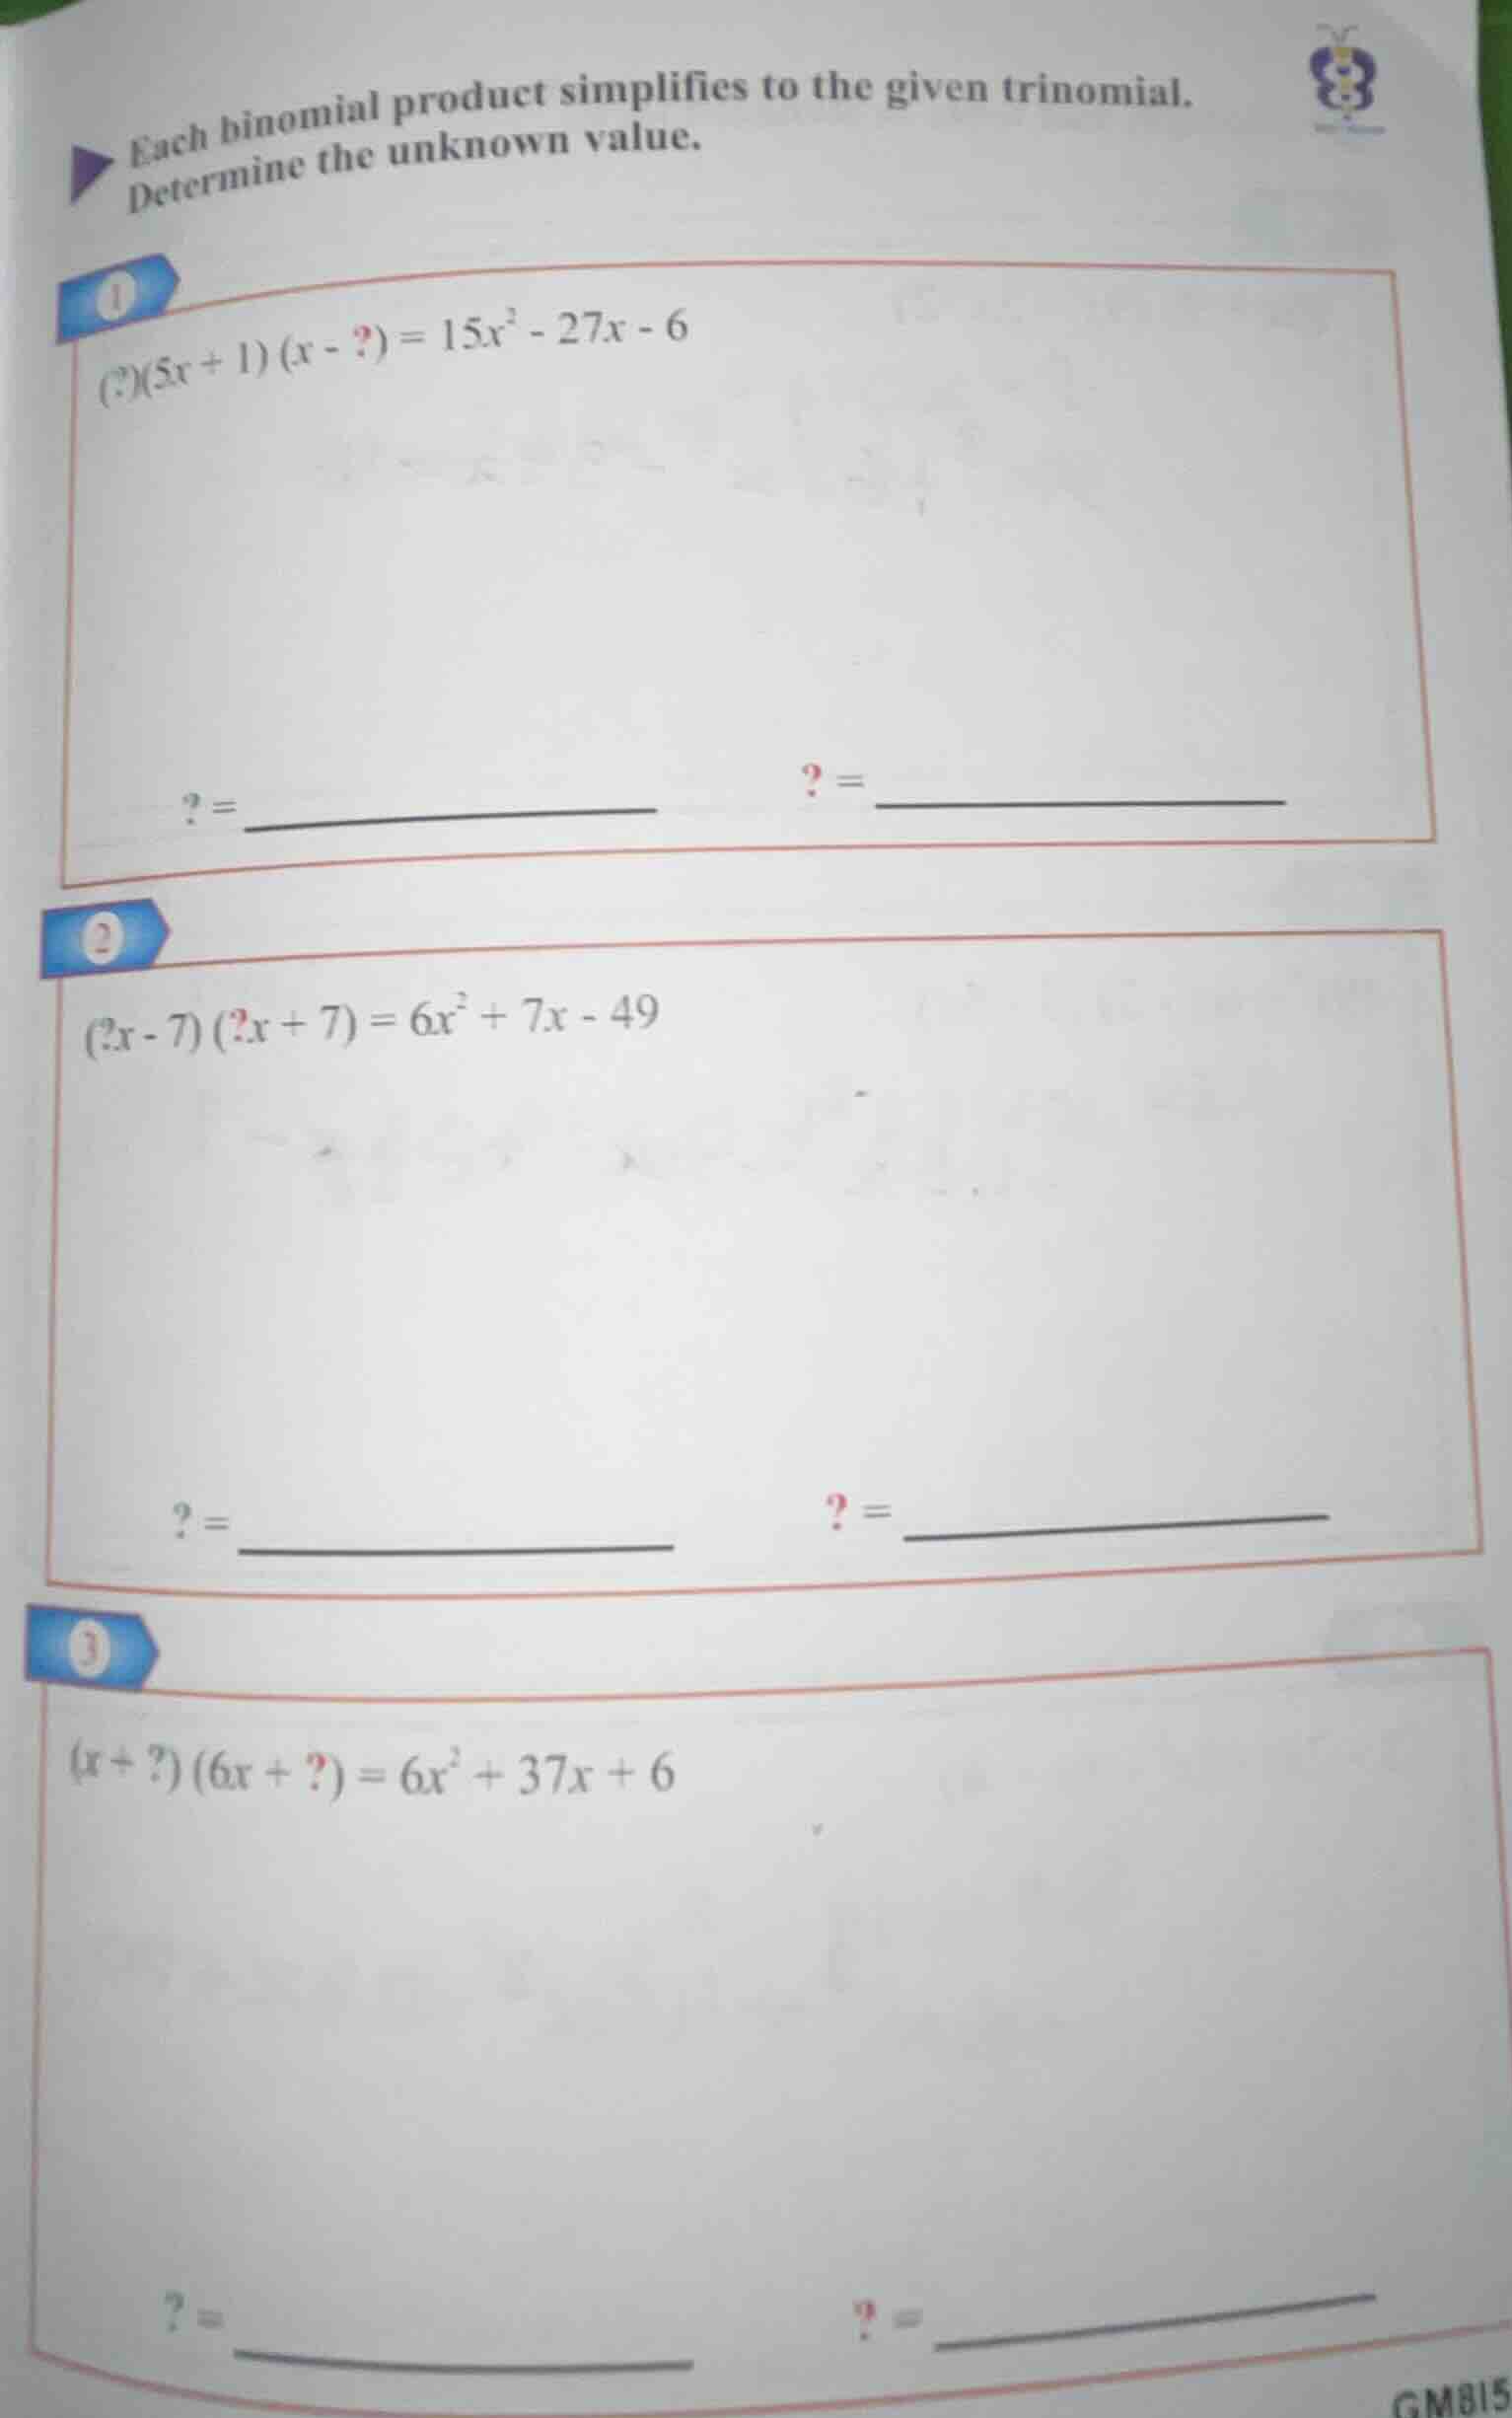 Each binomial product simplifies to the given trinomial.
Determine the unknown value.
1
(?)(5x + 1) (x - ?) = 15x² - 27x - 6
? = ? =
2
(?x - 7) (?x + 7) = 6x² + 7x - 49
? = ? =
3
(x + ?) (6x + ?) = 6x² + 37x + 6
? = ? =
GM815